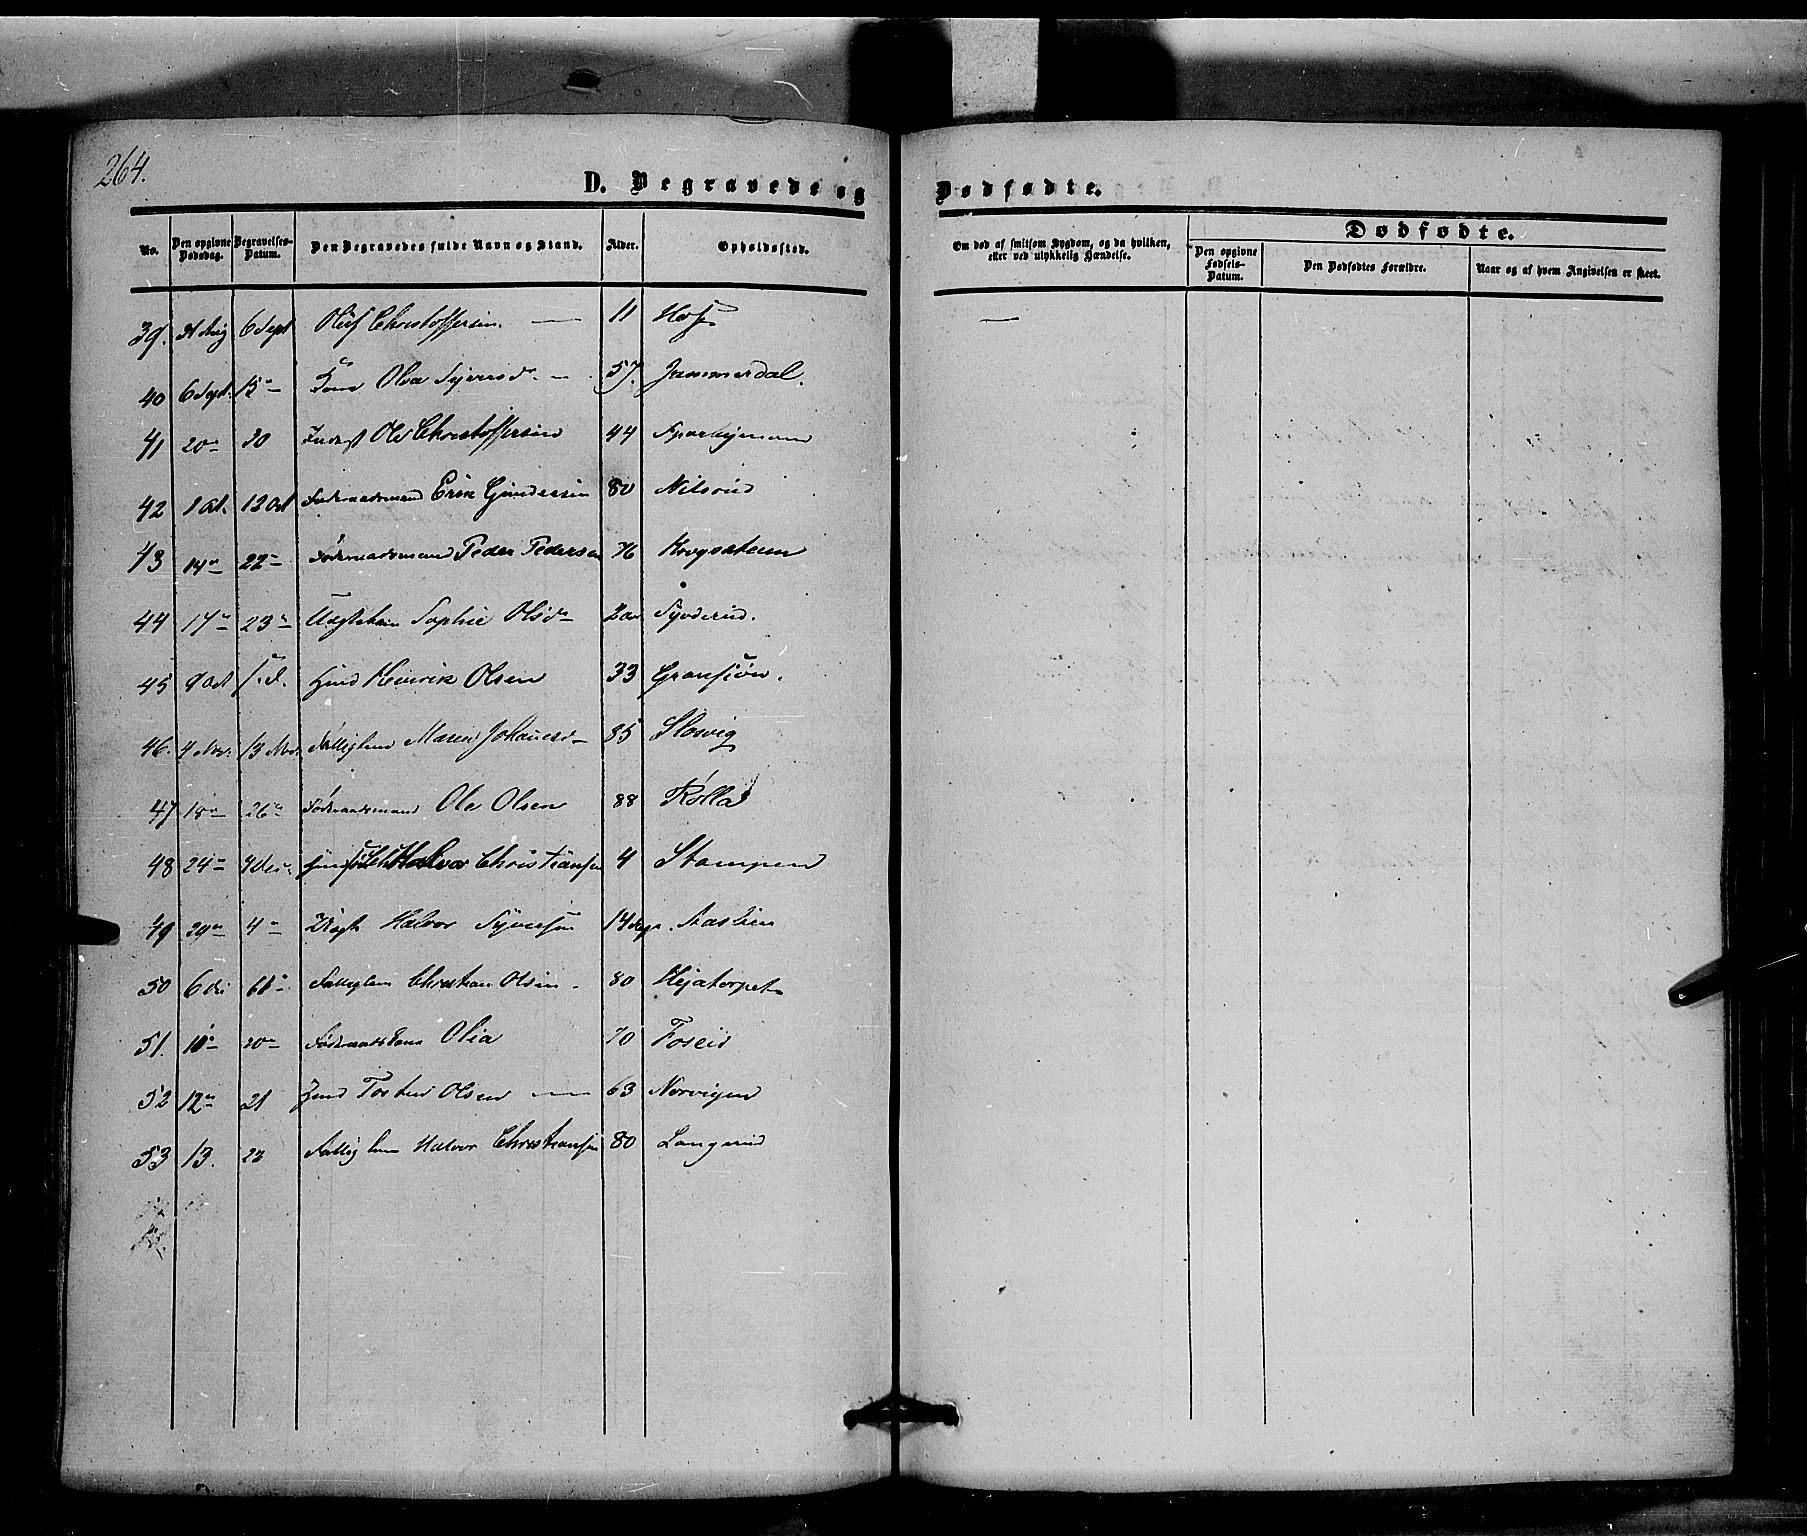 264.
D. Begravede og Dødfødte.
No. Den opgivne Dødsdag. Begravelses-Datum. Den Begravedes fulde Navn og Stand. Alder. Opholdssted. Om død af smitsom Sygdom, og da hvilken, eller ved ulykkelig Hændelse. Dødfødte.
Den opgivne Fødsels-Datum. Den Dødfødtes Forældre. Naar og af hvem Angivelsen er skeet.
39. 31 Aug 6 Sept Oluf Christoffersen. — 11 —
40 6 Sept. 15 — Olea Syversd. — 57. Jammerdal.
41 20 — 30 Inderst Ole Christoffersen 44
42 1 Oct. 12 Oct Føderaadsmand Erik Gundersen 80 Nilsrud
43 14 — 22 — Føderaadsmand Peder Pedersen 76 Krogsteen
44 17 — 23 — Sophie Olsd — 2 Syverud.
45 9 Oct Huusmd Henrik Olsen 33 Gransjøn.
46. 4 Nov. 13 Nov. Fattiglem Maren Johannesd — 85 Slosvig
47 18 — 26 — Føderaadsmand Ole Olsen 88 Rølla
48 24 — 4 Dec. Halvor Christiansen 4 Stampen
49 29 — 4 — Halvor Syversen 14 Dage. Aaslien
50 6 De Fattiglem Christian Olsen — 80 Hejatorpet
51. 10 — 20 — Olia 70 Foseid
52 12 — 21 Torsten Olsen — 63 Norvigen
53 13. 22 Fattiglem Halvor Christiansen 80 Langerud